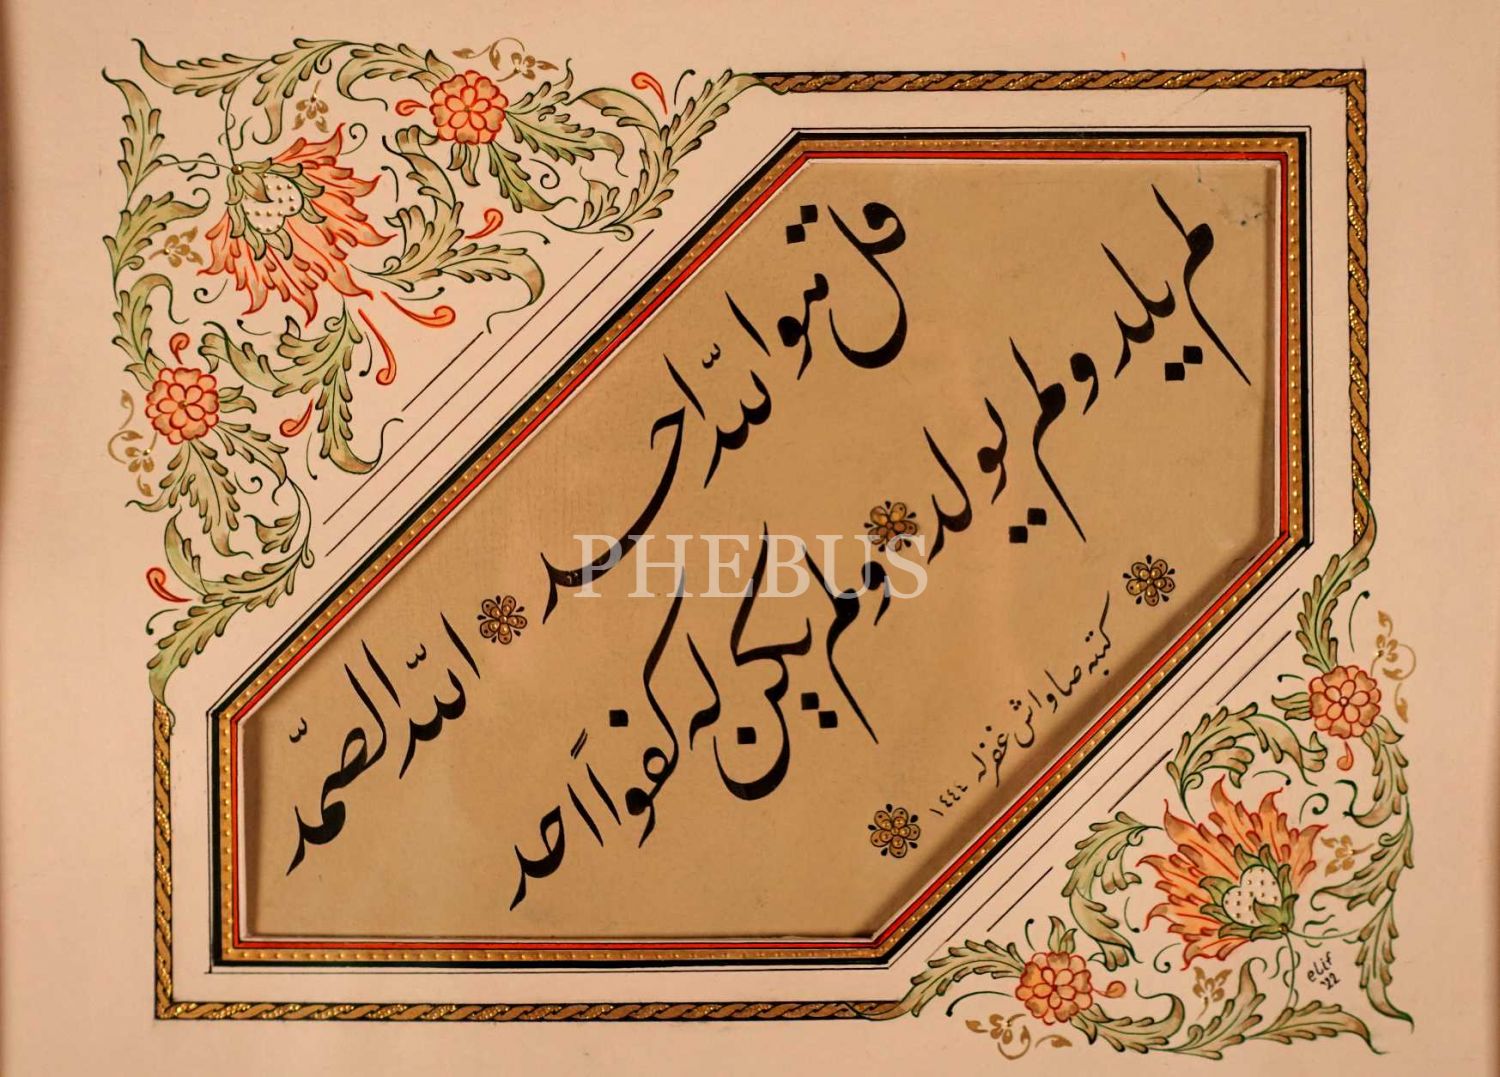 قل هو الله احد
الله الصمّد
لم يلد ولم يولد
ولم يكن له كفواً احد
كتبه صاواش غفرله ١٤٤٤
elif '22
PHEBUS